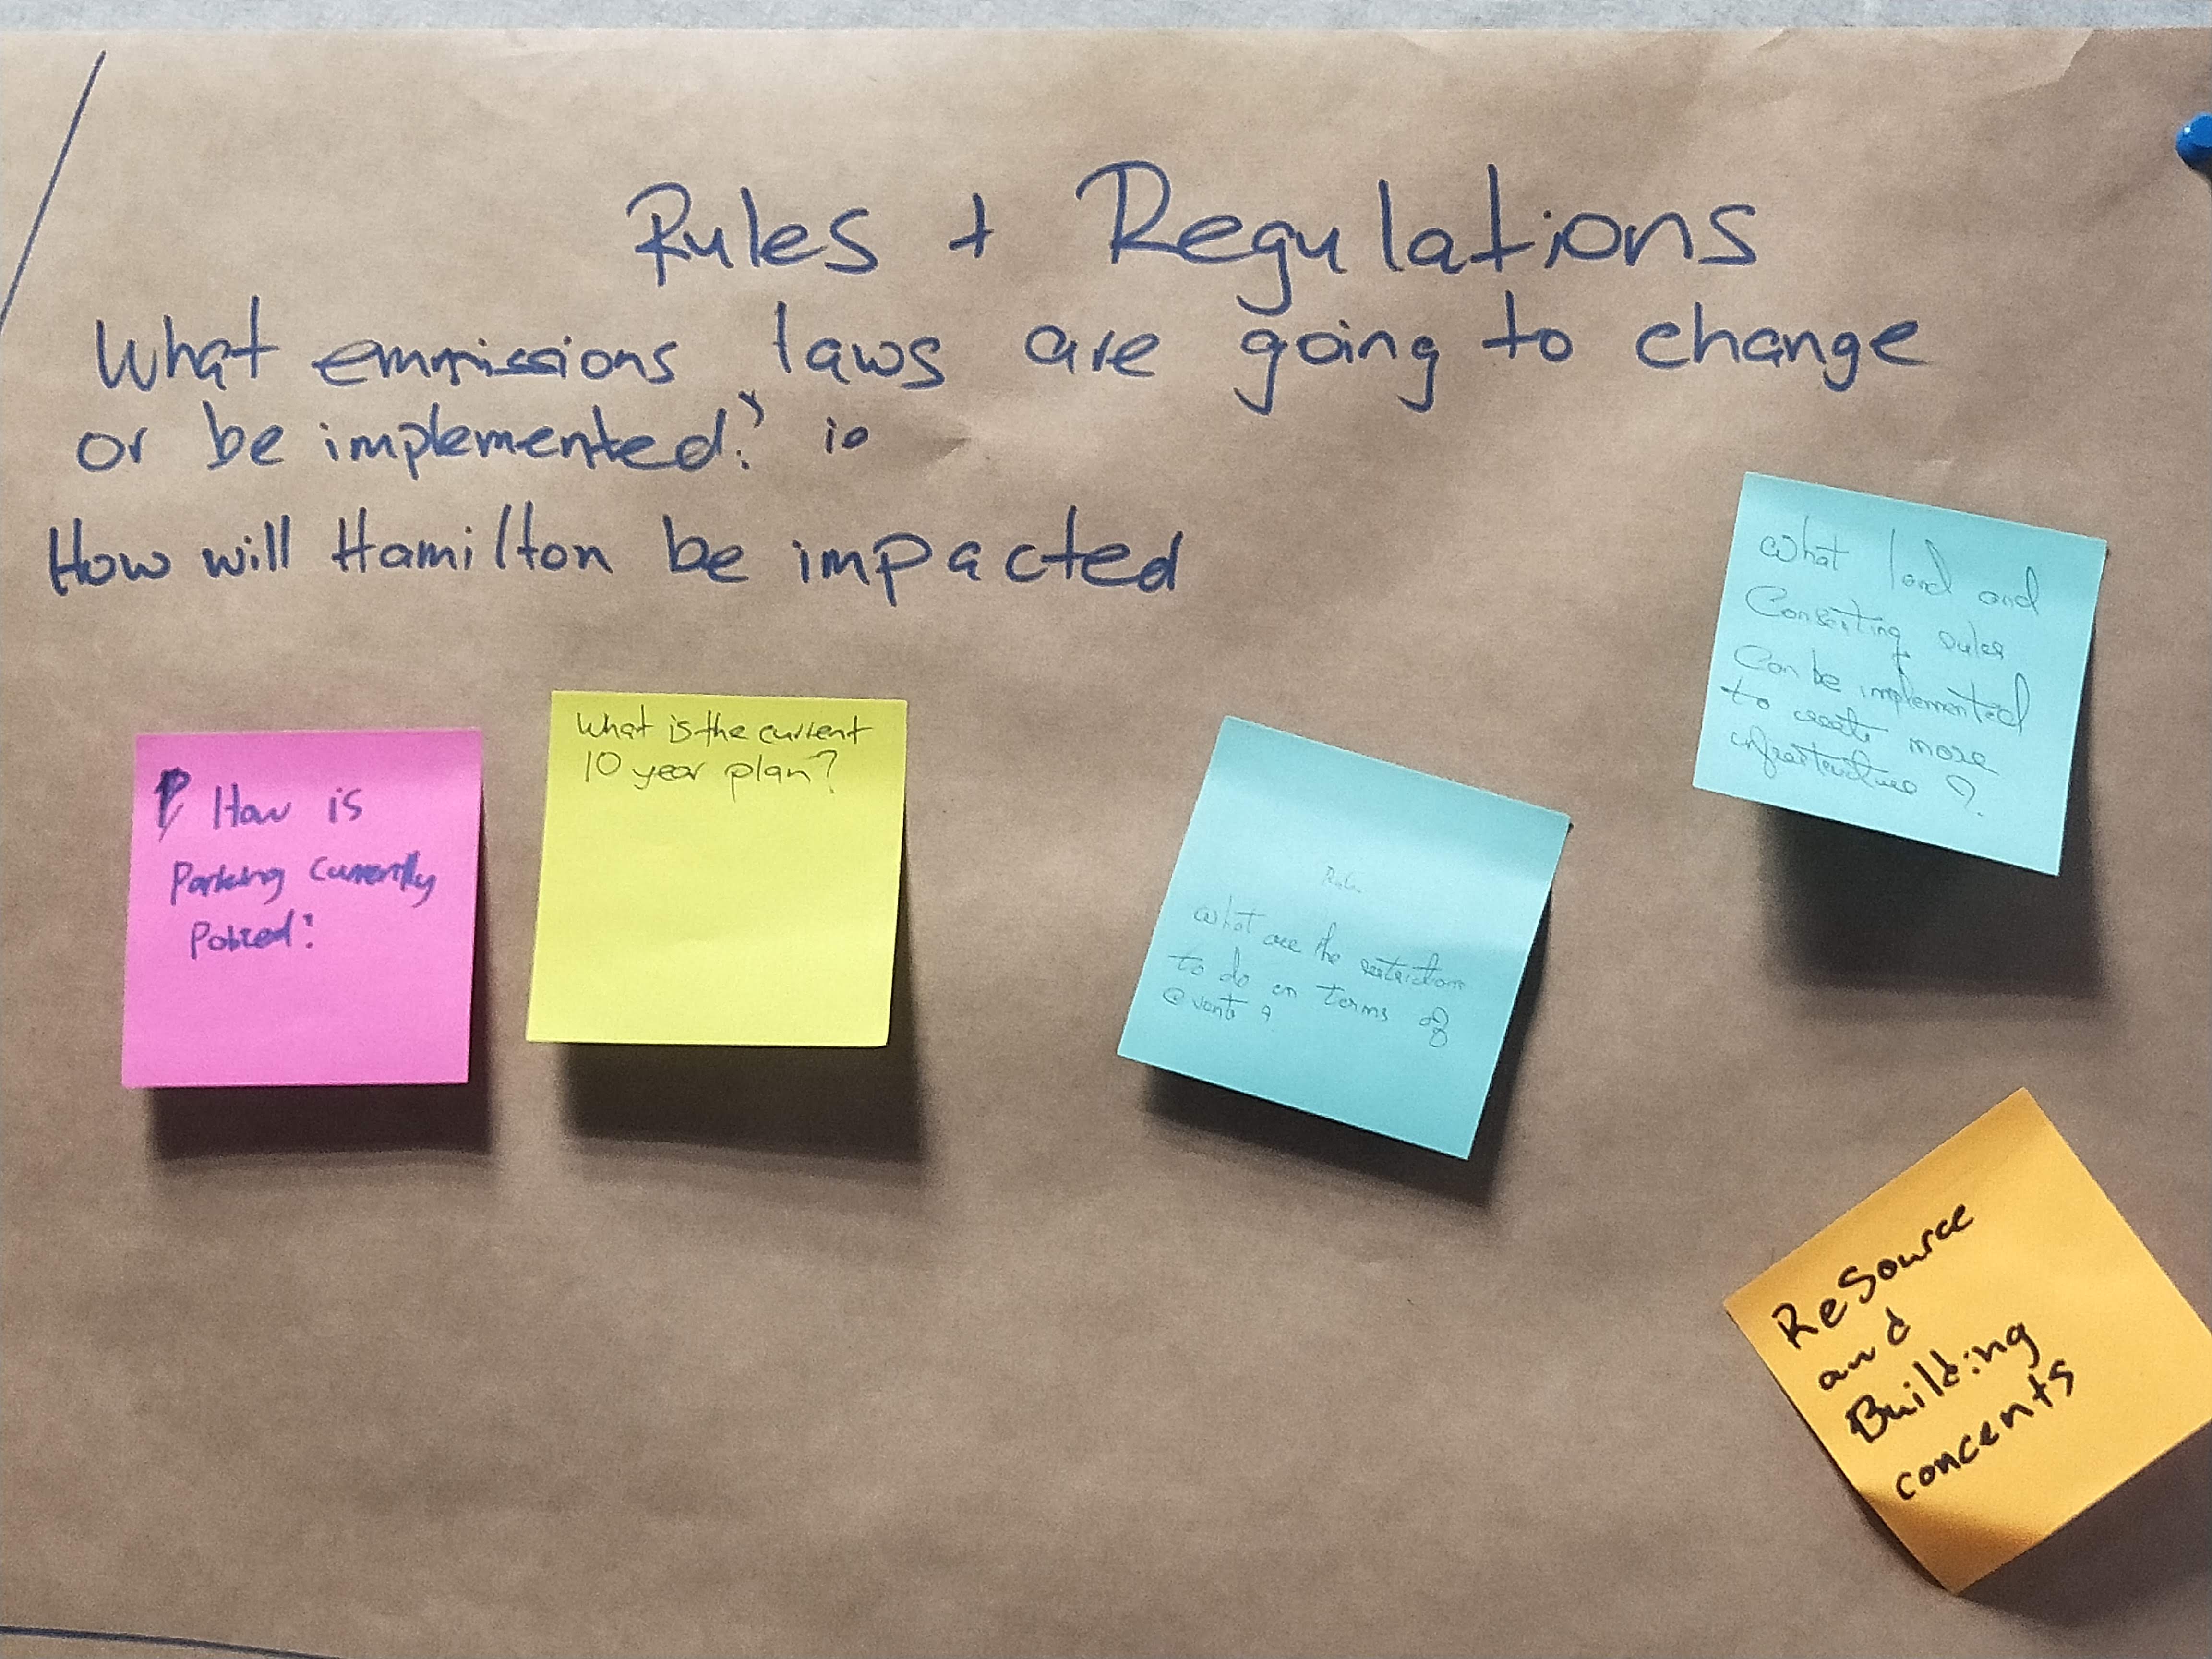 Rules + Regulations
What emmissions laws are going to change
or be implemented?
How will Hamilton be impacted
How is
Parking Currently
Policed?
What is the current
10 year plan?
Rules
What are the restrictions
to do in terms of
events?
What land and
Consenting rules
Can be implemented
to create more
infrastructure?
ReSource
and
Building
concents